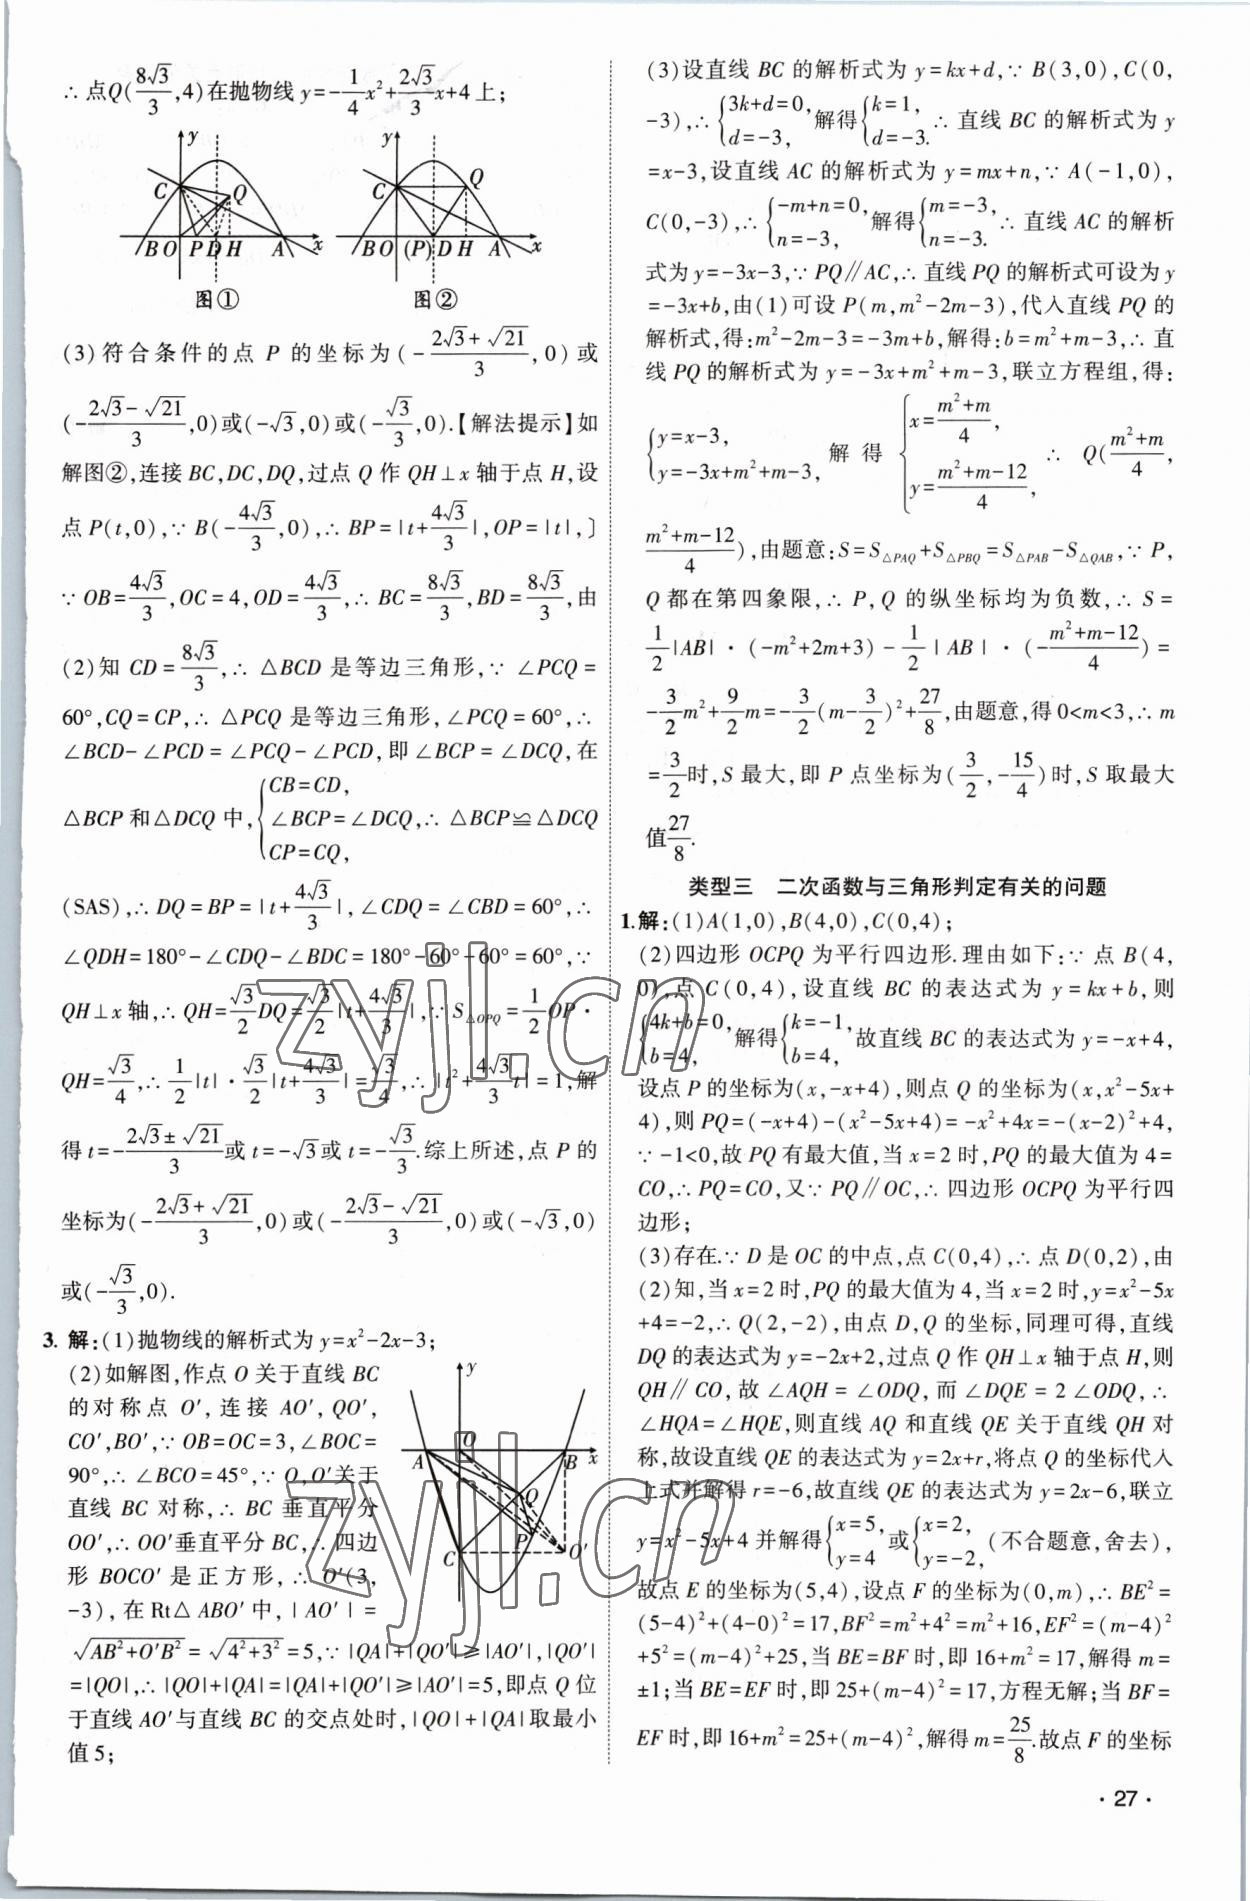 ∴点Q(8√3/3,4)在抛物线y=-1/4x²+2√3/3x+4上;
y C Q B O P D H A x
图①
y C Q B O (P) D H A x
图②
(3)符合条件的点 P 的坐标为(-(2√3+√21)/3,0)或
(-(2√3-√21)/3,0)或(-√3,0)或(-√3/3,0).【解法提示】如
解图②,连接 BC,DC,DQ,过点 Q 作 QH⊥x 轴于点 H,设
点 P(t,0),∵B(-4√3/3,0),∴BP=|t+4√3/3|,OP=|t|,〕
∵OB=4√3/3,OC=4,OD=4√3/3,∴BC=8√3/3,BD=8√3/3,由
(2)知 CD=8√3/3,∴△BCD 是等边三角形,∵∠PCQ=
60°,CQ=CP,∴△PCQ 是等边三角形,∠PCQ=60°,∴
∠BCD-∠PCD=∠PCQ-∠PCD,即∠BCP=∠DCQ,在
△BCP 和△DCQ 中,{CB=CD, ∠BCP=∠DCQ, CP=CQ, ∴△BCP≌△DCQ
(SAS),∴DQ=BP=|t+4√3/3|,∠CDQ=∠CBD=60°,∴
∠QDH=180°-∠CDQ-∠BDC=180°-60°-60°=60°,∵
QH⊥x 轴,∴QH=√3/2DQ=√3/2|t+4√3/3|,∵S△OPQ=1/2OP·
QH=√3/4,∴1/2|t|·√3/2|t+4√3/3|=√3/4,∴|t²+4√3/3t|=1,解
得 t=-(2√3±√21)/3或 t=-√3或 t=-√3/3.综上所述,点 P 的
坐标为(-(2√3+√21)/3,0)或(-(2√3-√21)/3,0)或(-√3,0)
或(-√3/3,0).
3. 解:(1)抛物线的解析式为 y=x²-2x-3;
(2)如解图,作点 O 关于直线 BC
的对称点 O′,连接 AO′,QO′,
CO′,BO′,∵OB=OC=3,∠BOC=
90°,∴∠BCO=45°,∵O,O′关于
直线 BC 对称,∴BC 垂直平分
OO′,∴OO′垂直平分 BC,∴四边
形 BOCO′是正方形,∴O′(3,
-3),在 Rt△ABO′中,|AO′|=
y A O B x Q P C O′
√(AB²+O′B²)=√(4²+3²)=5,∵|QA|+|QO′|≥|AO′|,|QO′|
=|QO|,∴|QO|+|QA|=|QA|+|QO′|≥|AO′|=5,即点 Q 位
于直线 AO′与直线 BC 的交点处时,|QO|+|QA|取最小
值 5;
(3)设直线 BC 的解析式为 y=kx+d,∵B(3,0),C(0,
-3),∴{3k+d=0, d=-3, 解得{k=1, d=-3. ∴直线 BC 的解析式为 y
=x-3,设直线 AC 的解析式为 y=mx+n,∵A(-1,0),
C(0,-3),∴{-m+n=0, n=-3, 解得{m=-3, n=-3. ∴直线 AC 的解析
式为 y=-3x-3,∵PQ∥AC,∴直线 PQ 的解析式可设为 y
=-3x+b,由(1)可设 P(m,m²-2m-3),代入直线 PQ 的
解析式,得:m²-2m-3=-3m+b,解得:b=m²+m-3,∴直
线 PQ 的解析式为 y=-3x+m²+m-3,联立方程组,得:
{y=x-3, y=-3x+m²+m-3, 解得{x=(m²+m)/4, y=(m²+m-12)/4, ∴Q((m²+m)/4,
(m²+m-12)/4),由题意:S=S△PAQ+S△PBQ=S△PAB-S△QAB,∵P,
Q 都在第四象限,∴P,Q 的纵坐标均为负数,∴S=
1/2|AB|·(-m²+2m+3)-1/2|AB|·(-(m²+m-12)/4)=
-3/2m²+9/2m=-3/2(m-3/2)²+27/8,由题意,得 0<m<3,∴m
=3/2时,S 最大,即 P 点坐标为(3/2,-15/4)时,S 取最大
值27/8.
类型三 二次函数与三角形判定有关的问题
1.解:(1)A(1,0),B(4,0),C(0,4);
(2)四边形 OCPQ 为平行四边形.理由如下:∵点 B(4,
0),点 C(0,4),设直线 BC 的表达式为 y=kx+b,则
{4k+b=0, b=4, 解得{k=-1, b=4, 故直线 BC 的表达式为 y=-x+4,
设点 P 的坐标为(x,-x+4),则点 Q 的坐标为(x,x²-5x+
4),则 PQ=(-x+4)-(x²-5x+4)=-x²+4x=-(x-2)²+4,
∵-1<0,故 PQ 有最大值,当 x=2 时,PQ 的最大值为 4=
CO,∴PQ=CO,又∵PQ∥OC,∴四边形 OCPQ 为平行四
边形;
(3)存在.∵D 是 OC 的中点,点 C(0,4),∴点 D(0,2),由
(2)知,当 x=2 时,PQ 的最大值为 4,当 x=2 时,y=x²-5x
+4=-2,∴Q(2,-2),由点 D,Q 的坐标,同理可得,直线
DQ 的表达式为 y=-2x+2,过点 Q 作 QH⊥x 轴于点 H,则
QH∥CO,故∠AQH=∠ODQ,而∠DQE=2∠ODQ,∴
∠HQA=∠HQE,则直线 AQ 和直线 QE 关于直线 QH 对
称,故设直线 QE 的表达式为 y=2x+r,将点 Q 的坐标代入
上式并解得 r=-6,故直线 QE 的表达式为 y=2x-6,联立
y=x²-5x+4 并解得{x=5, y=4 或{x=2, y=-2, (不合题意,舍去),
故点 E 的坐标为(5,4),设点 F 的坐标为(0,m),∴BE²=
(5-4)²+(4-0)²=17,BF²=m²+4²=m²+16,EF²=(m-4)²
+5²=(m-4)²+25,当 BE=BF 时,即 16+m²=17,解得 m=
±1;当 BE=EF 时,即 25+(m-4)²=17,方程无解;当 BF=
EF 时,即 16+m²=25+(m-4)²,解得 m=25/8.故点 F 的坐标
·27·
zyjl.cn
zyjl.cn